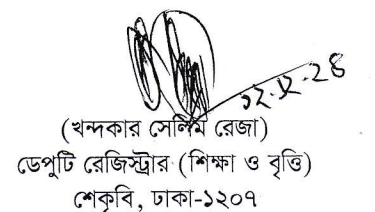 ১২.১২.২৪
(খন্দকার সেলিম রেজা)
ডেপুটি রেজিস্ট্রার (শিক্ষা ও বৃত্তি)
শেকৃবি, ঢাকা-১২০৭